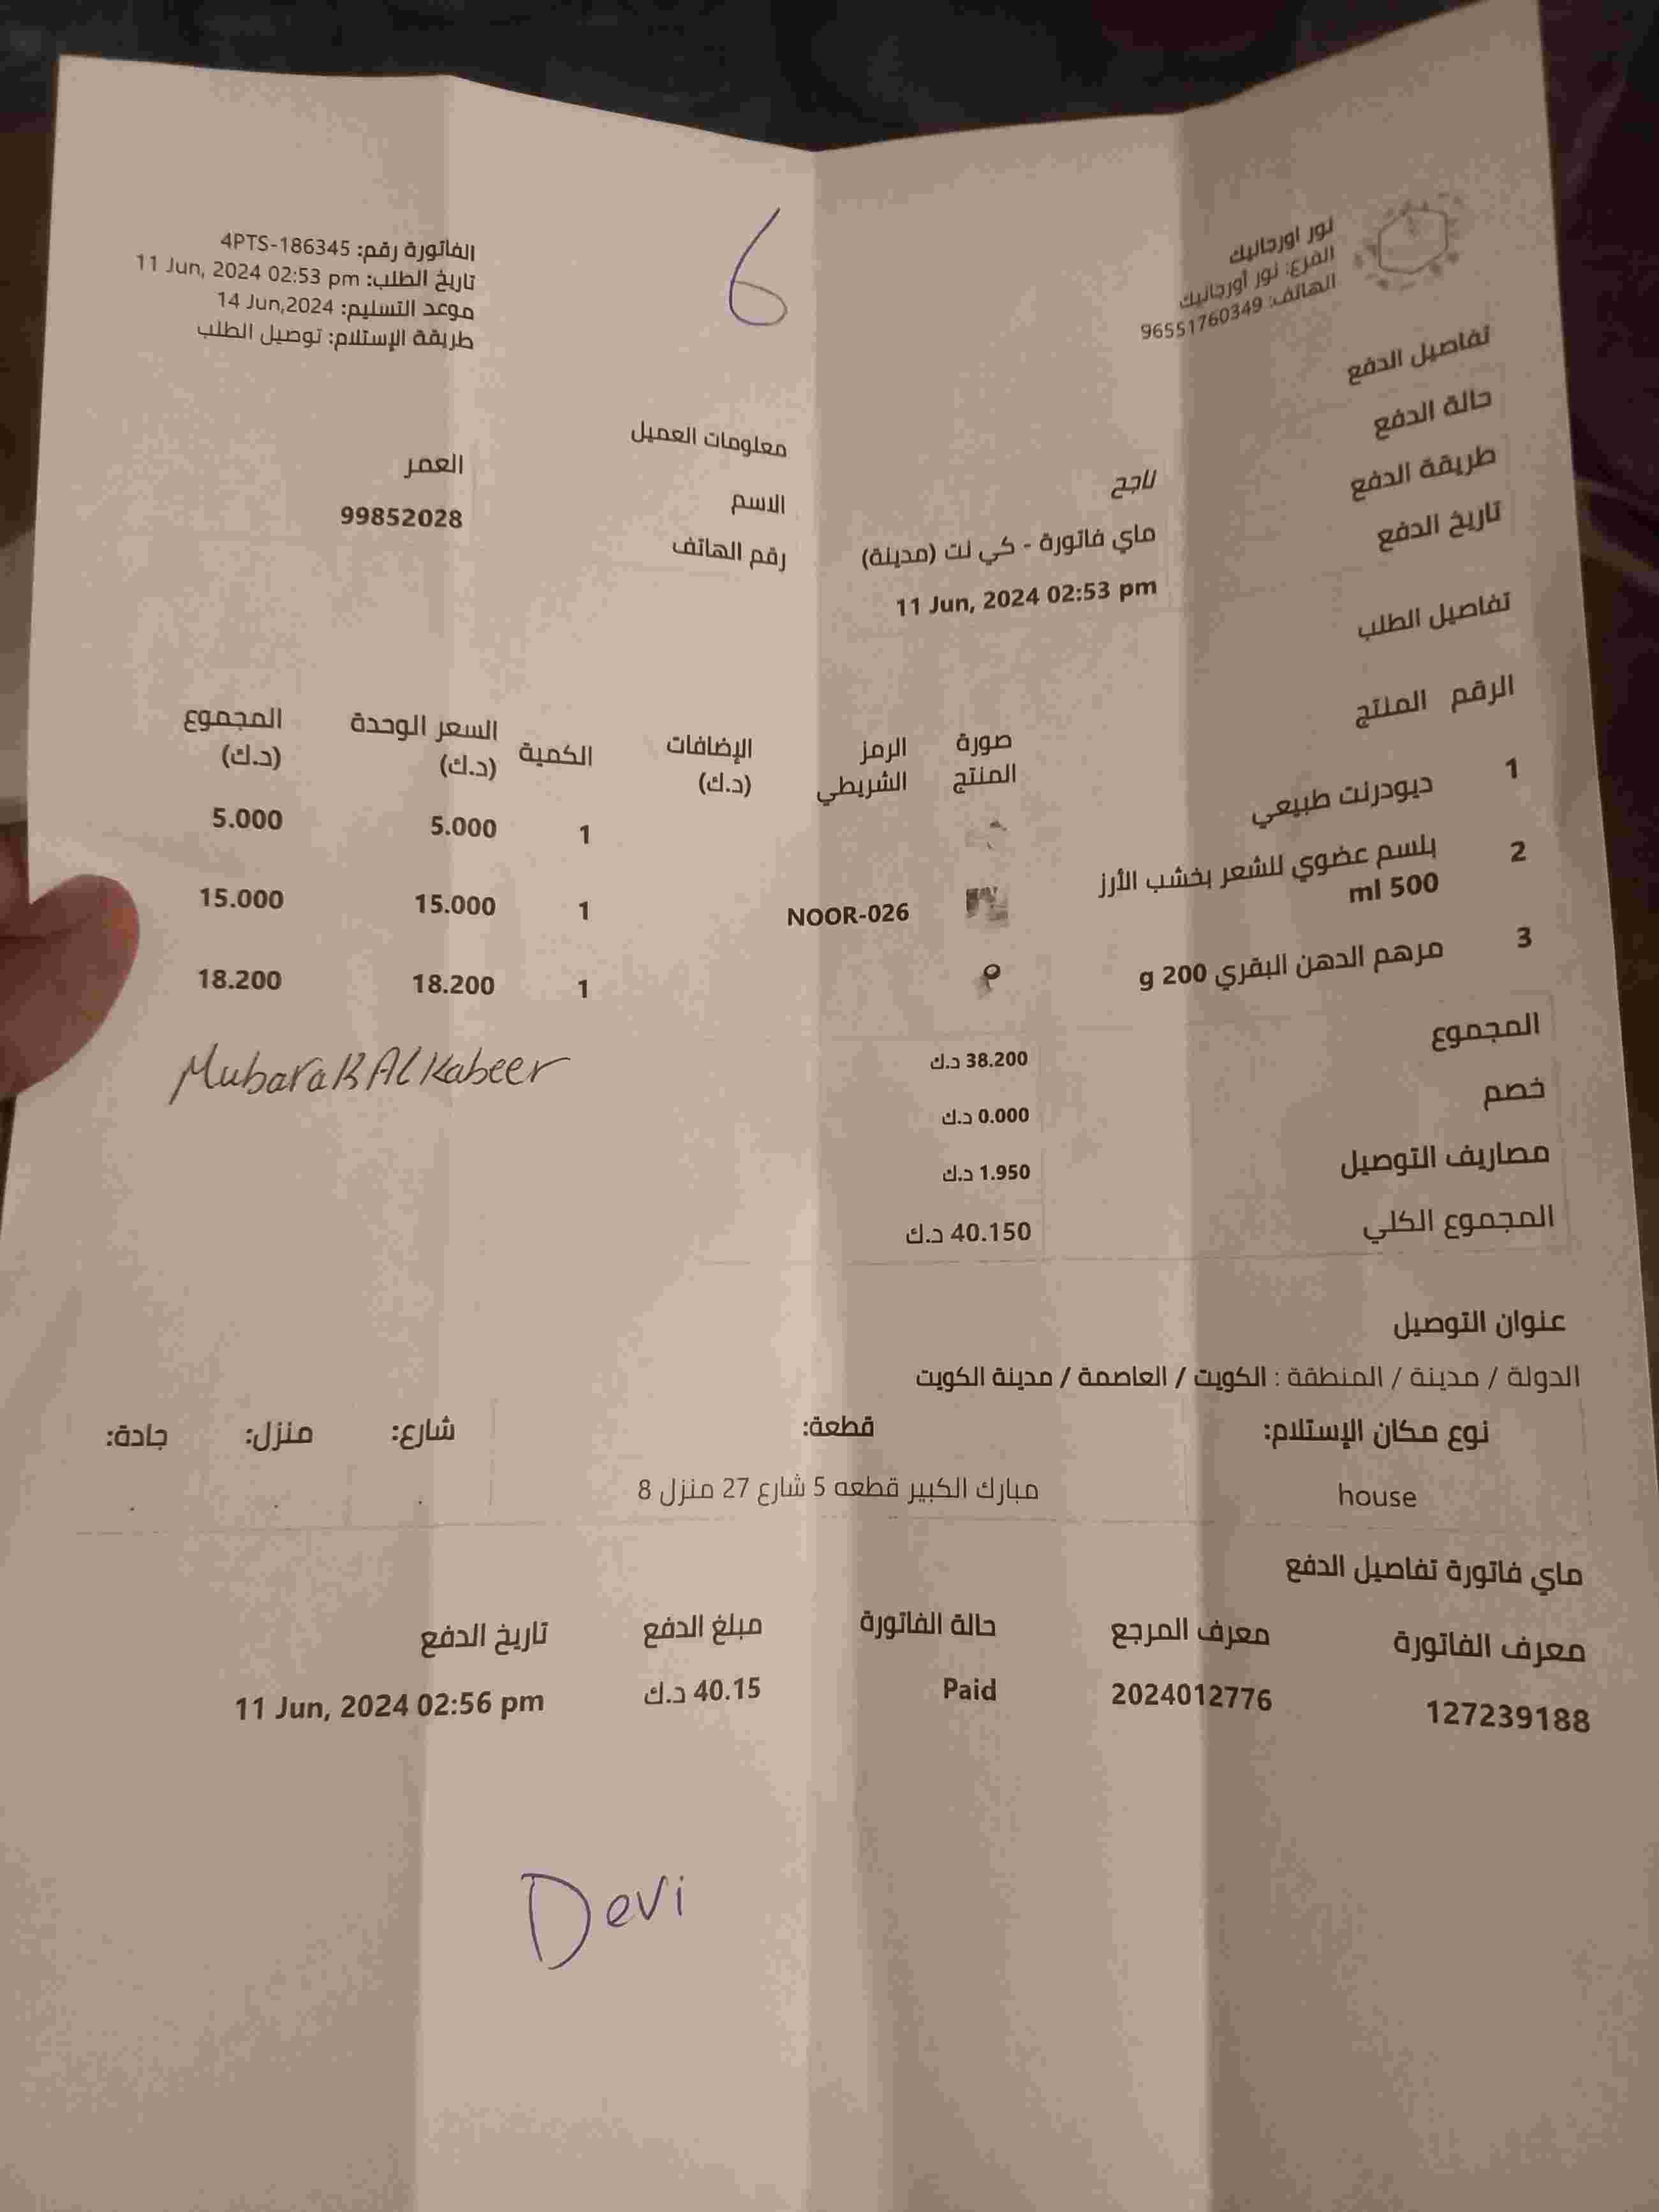 نور اورجانيك
الفرع: نور أورجانيك
الهاتف: 96551760349
6
الفاتورة رقم: 4PTS-186345
تاريخ الطلب: 11 Jun, 2024 02:53 pm
موعد التسليم: 14 Jun,2024
طريقة الإستلام: توصيل الطلب
تفاصيل الدفع
حالة الدفع ناجح
طريقة الدفع ماي فاتورة - كي نت (مدينة)
تاريخ الدفع 11 Jun, 2024 02:53 pm
معلومات العميل
الاسم العمر
رقم الهاتف 99852028
تفاصيل الطلب
الرقم المنتج صورة المنتج الرمز الشريطي الإضافات (د.ك) الكمية السعر الوحدة (د.ك) المجموع (د.ك)
1 ديودرنت طبيعي 1 5.000 5.000
2 بلسم عضوي للشعر بخشب الأرز 500 ml NOOR-026 1 15.000 15.000
3 مرهم الدهن البقري 200 g 1 18.200 18.200
المجموع 38.200 د.ك
Mubarak Al Kabeer
خصم 0.000 د.ك
مصاريف التوصيل 1.950 د.ك
المجموع الكلي 40.150 د.ك
عنوان التوصيل
الدولة / مدينة / المنطقة : الكويت / العاصمة / مدينة الكويت
نوع مكان الإستلام: قطعة: شارع: منزل: جادة:
house مبارك الكبير قطعه 5 شارع 27 منزل 8 . . .
ماي فاتورة تفاصيل الدفع
معرف الفاتورة معرف المرجع حالة الفاتورة مبلغ الدفع تاريخ الدفع
127239188 2024012776 Paid 40.15 د.ك 11 Jun, 2024 02:56 pm
Devi